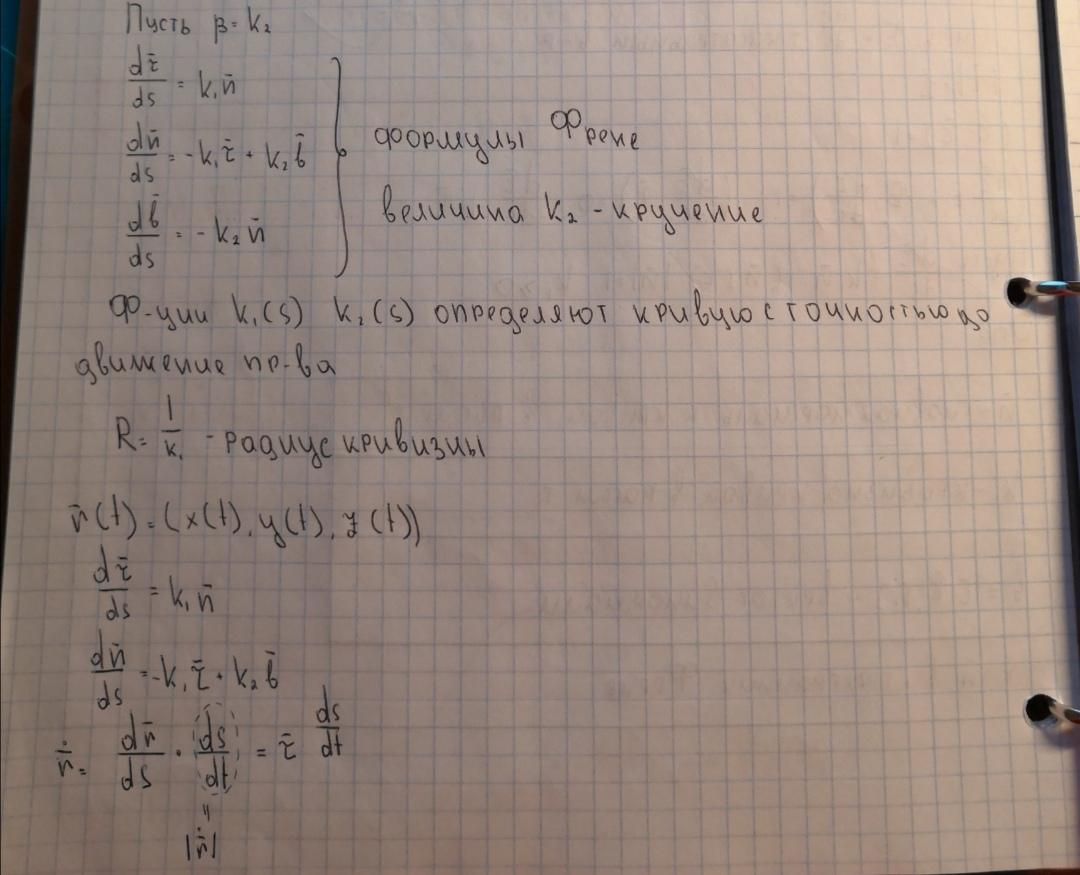 Пусть β = k₂
dτ̄/ds = k₁n̄
dn̄/ds = -k₁τ̄ + k₂b̄
формулы Френе
db̄/ds = -k₂n̄
величина k₂ - кручение
Ф-ции k₁(s) k₂(s) определяют кривую с точностью до
движение пр-ва
R = 1/k₁ - радиус кривизны
r̄(t) = (x(t), y(t), z(t))
dτ̄/ds = k₁n̄
dn̄/ds = -k₁τ̄ + k₂b̄
ṙ̄ = dr̄/ds · ds/dt = τ̄ ds/dt
||
|ṙ̄|